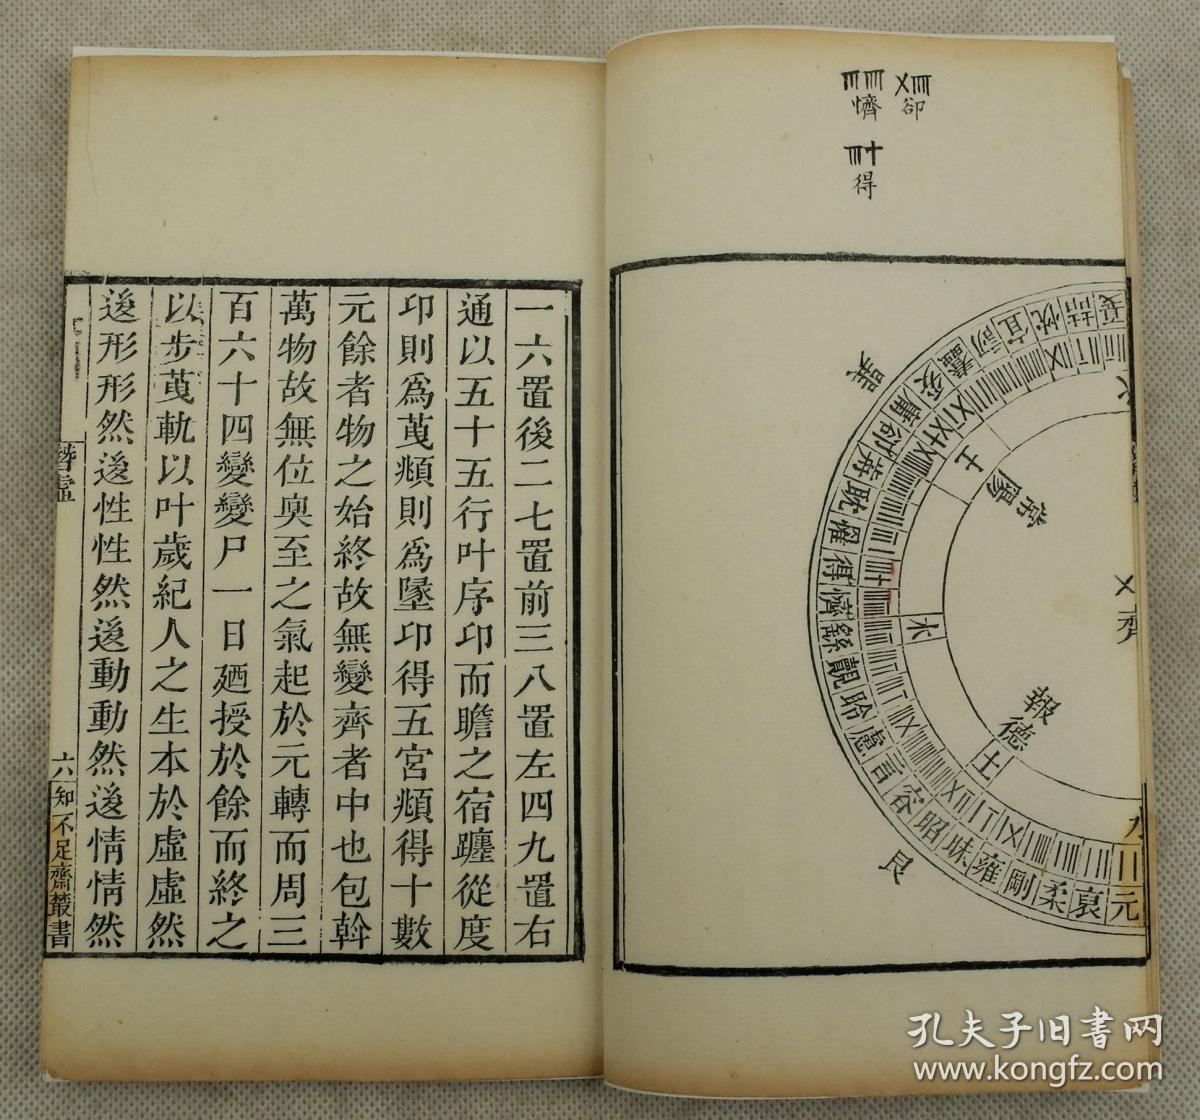 卻
㥽
得
元
裒
柔
剛
雍
昧
昭
容
言
慮
聆
覿
繇
㥽
得
罹
耽
卻
庸
妥
蠢
訒
宜
忱
喆
戛
土
木
土
水
巽
艮
常陽
報德
齊
一六置後二七置前三八置左四九置右
通以五十五行叶序卬而瞻之宿躔從度
卬則為萈頫則為墬卬得五宮頫得十數
元餘者物之始終故無變齊者中也包斡
萬物故無位奥至之氣起於元轉而周三
百六十四變變尸一日廼授於餘而終之
以步萈軌以叶歲紀人之生本於虛虛然
後形形然後性性然後動動然後情情然
潛虛
六
知不足齋叢書
孔夫子旧书网
www.kongfz.com